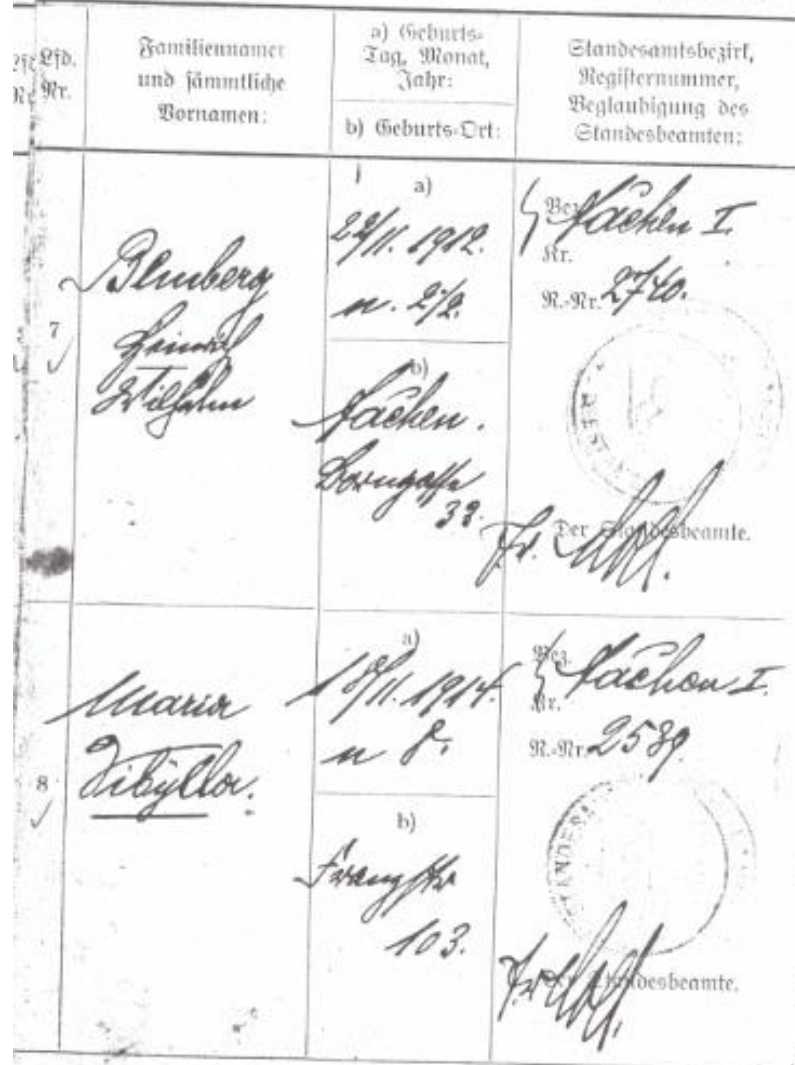 Lfd.
Nr.
Familiennamen
und sämmtliche
Vornamen:
a) Geburts-
Tag, Monat,
Jahr:
b) Geburts-Ort:
Standesamtsbezirk,
Registernummer,
Beglaubigung des
Standesbeamten:
7
Blumberg
Heinrich
Wilhelm
a)
22/11. 1912.
n. 2½.
b)
Aachen.
Borngasse
32.
Bez. Aachen I.
Kr.
R.-Nr. 2740.
Der Standesbeamte.
8
Maria
Sibylla.
a)
18/11. 1914.
n 8.
b)
Franzstr
103.
Bez. Aachen I.
Kr.
R.-Nr. 2539.
STANDESA
Der Standesbeamte.